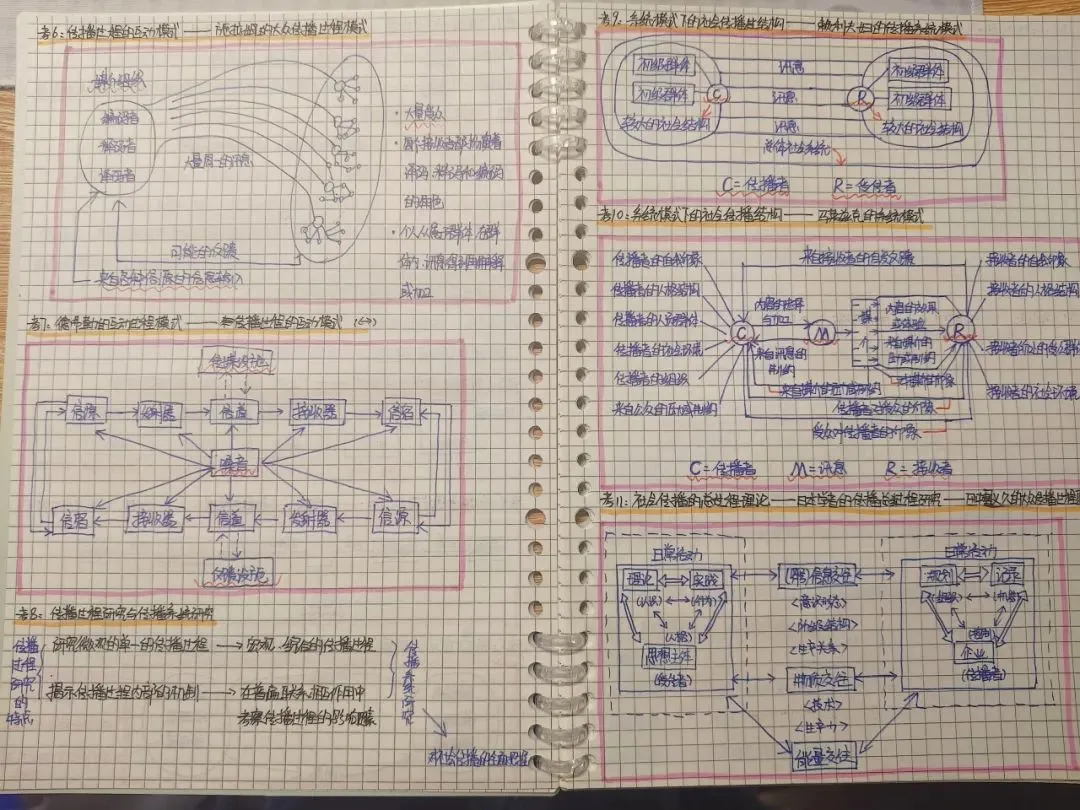 考6：传播过程的互动模式——施拉姆的大众传播过程模式
媒介组织
编码者
解码者
译码者
大量同一的讯息
可能的反馈
来自各种信源的信息输入
·大量受众
·每个接收者都扮演着
译码、释码和编码
的角色
·个人从属于群体，在群
体内，讯息得到再解释
或加工
考7：德弗勒的互动过程模式——传播过程的互动模式（↔）
传媒设施
信源
发射器
信道
接收器
信宿
噪音
信宿
接收器
信道
发射器
信源
反馈设施
考8：传播过程研究与传播系统研究
传播过程研究的特点
研究微观的单一的传播过程
宏观、综合的传播过程
揭示传播过程内部的机制
在普遍联系、相互作用中
考察传播过程的影响因素
传播系统研究
对社会传播的全面把握
考9：系统模式下的社会传播结构——赖利夫妇的传播系统模式
初级群体
初级群体
较大的社会结构
C
讯息
讯息
讯息
总体社会系统
R
初级群体
初级群体
较大的社会结构
C=传播者
R=受传者
考10：系统模式下的社会传播结构——马莱兹克的系统模式
传播者的自我印象
传播者的人格结构
传播者的人员群体
传播者的社会环境
传播者的组织
来自公众的压力或制约
来自接收者的自发反馈
C
内容的选择
与加工
来自讯息的
制约
M
媒
介
内容的效果
或体验
来自媒介的
压力或制约
R
来自媒介的压力或制约
对媒介的印象
传播者对受众的印象
受众对传播者的印象
接收者的自我印象
接收者的人格结构
接收者的社会环境
C=传播者
M=讯息
R=接收者
考11：社会传播的总过程理论——日本学者的传播总过程研究——田中义久的大众传播过程
日常活动
理论
实践
(认识)
(行为)
(人格)
思想主体
(受信者)
(精神)信息交往
<意识形态>
<阶级结构>
<生产关系>
物质交往
<技术>
<生产力>
能量交往
日常活动
规划
记录
(组织)
企业
(传播者)